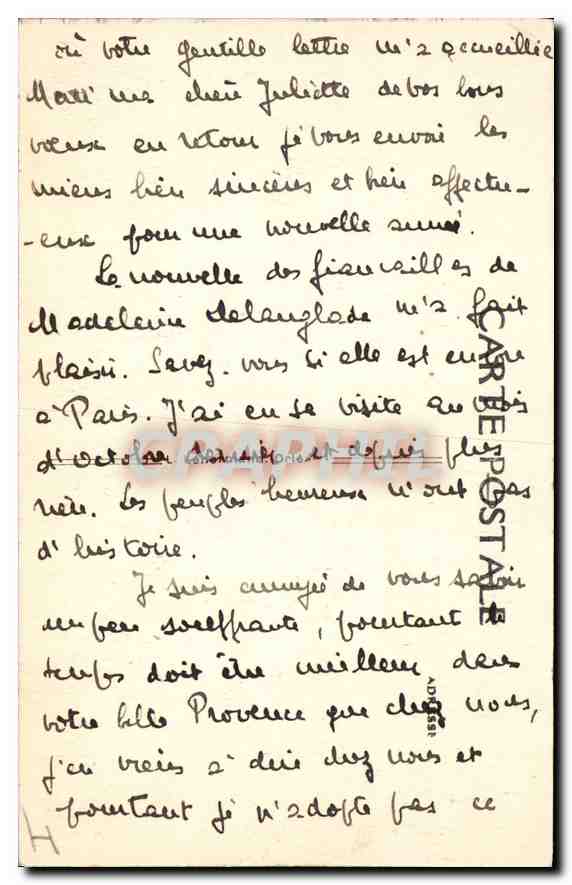 où votre gentille lettre m'a accueillie
Merci ma chère Juliette de vos bons
voeux en retour je vous envoie les
miens bien sincères et bien affectu-
-eux pour une nouvelle année.
La nouvelle des fiançailles de
Madeleine Delanglade m'a fait
plaisir. Savez-vous si elle est encore
à Paris. J'ai eu sa visite au mois
d'octobre dernier et depuis plus
rien. Les peuples heureux n'ont pas
d'histoire.
Je suis ennuyée de vous savoir
un peu souffrante, pourtant le
temps doit être meilleur dans
votre belle Provence que chez nous,
j'en viens à dire chez nous et
pourtant je n'adopte pas ce
CARTE POSTALE
ADRESSE
CPAPHIL